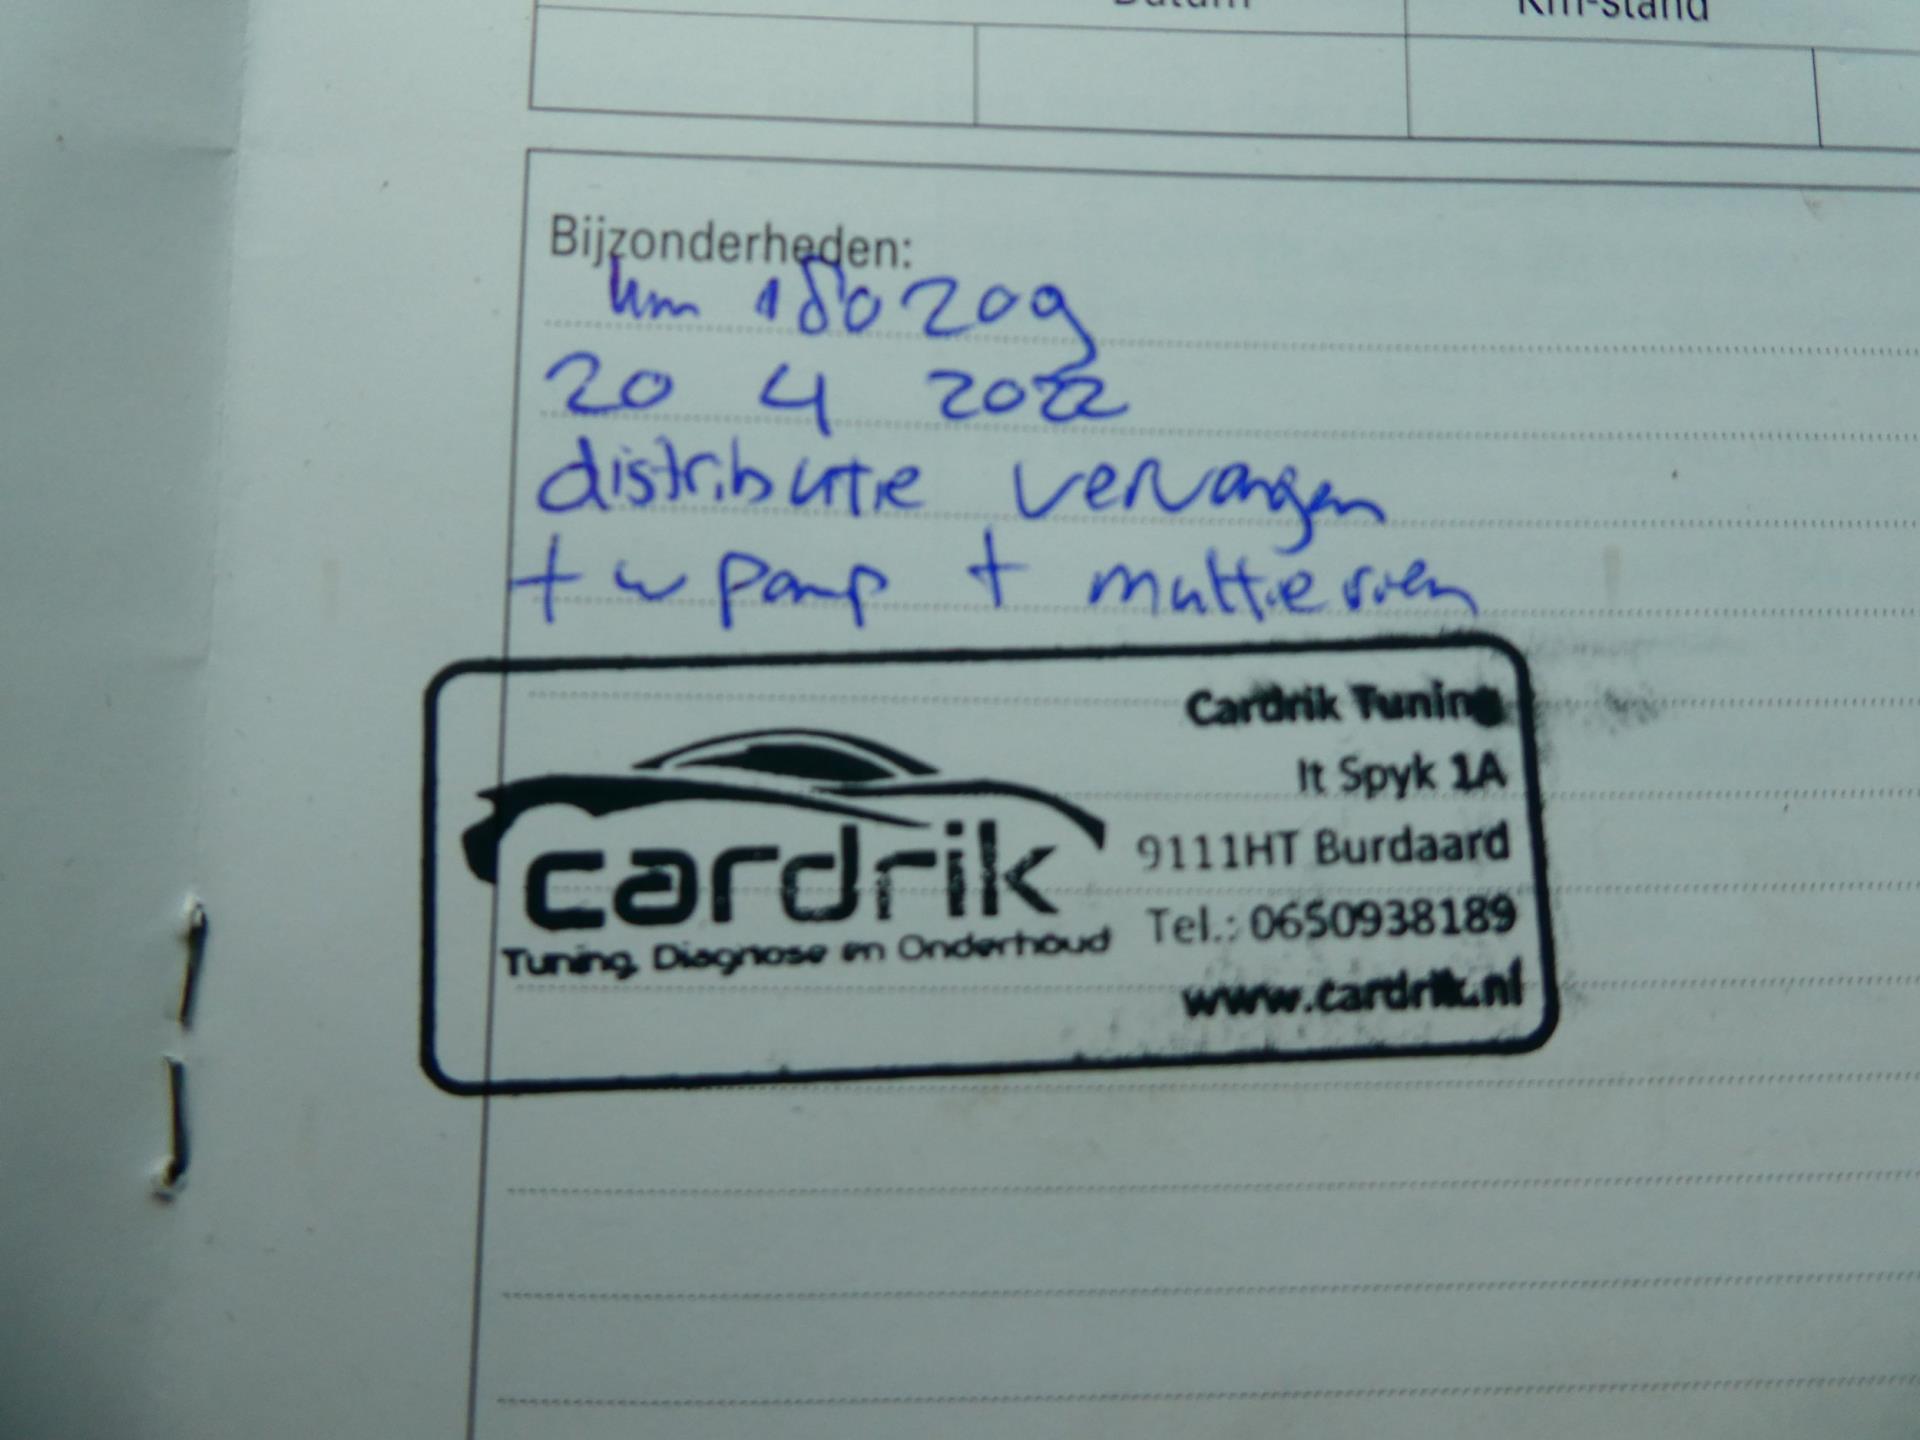 Datum Km-stand
Bijzonderheden:
km 180209
20 4 2022
distributie vervangen
+ w pomp + multieriem
cardrik
Tuning, Diagnose en Onderhoud
Cardrik Tuning
It Spyk 1A
9111HT Burdaard
Tel.: 0650938189
www.cardrik.nl